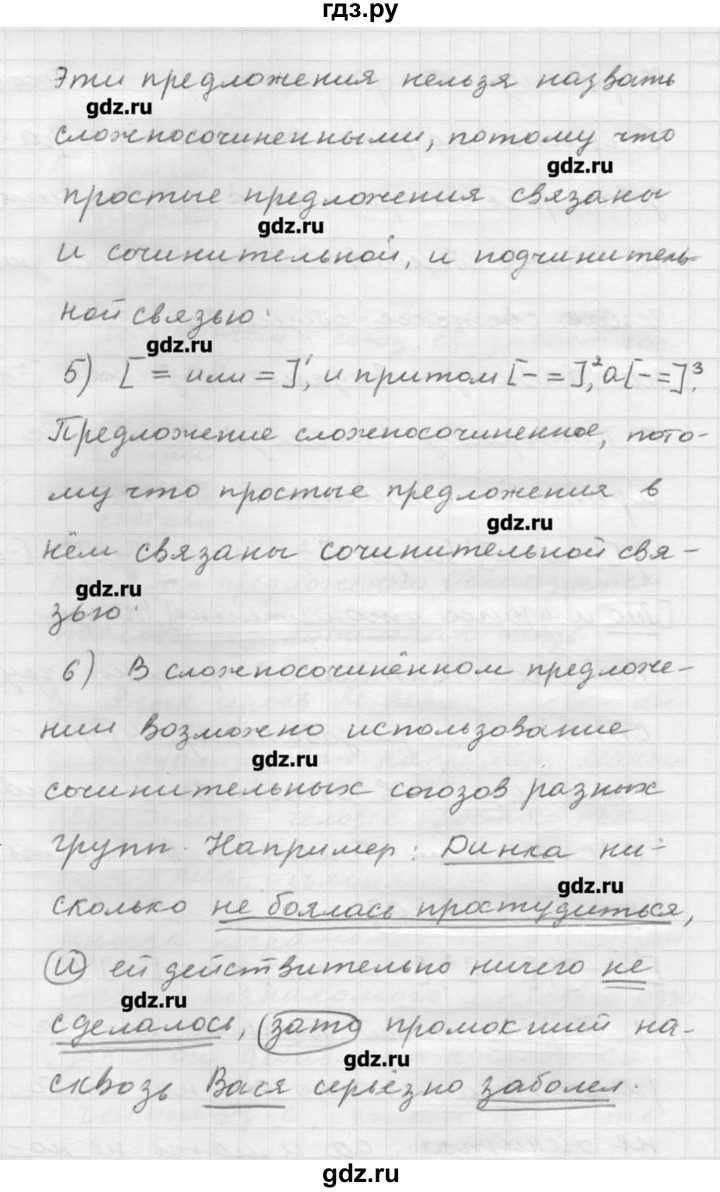 гдз.ру
Эти предложения нельзя назвать
gdz.ru
сложносочиненными, потому что
gdz.ru
простые предложения связаны
gdz.ru
и сочинительной, и подчинитель-
ной связью.
gdz.ru
5) [ = или = ]¹, и притом [- =],² а [- =]³.
Предложение сложносочиненное, пото-
му что простые предложения в
gdz.ru
нём связаны сочинительной свя-
gdz.ru
зью.
6) В сложносочинённом предложе-
нии возможно использование
gdz.ru
сочинительных союзов разных
групп. Например: Динка ни-
gdz.ru
сколько не боялась простудиться,
и ей действительно ничего не
gdz.ru
сделалось, зато промокший на-
gdz.ru
сквозь Вася серьёзно заболел.
gdz.ru